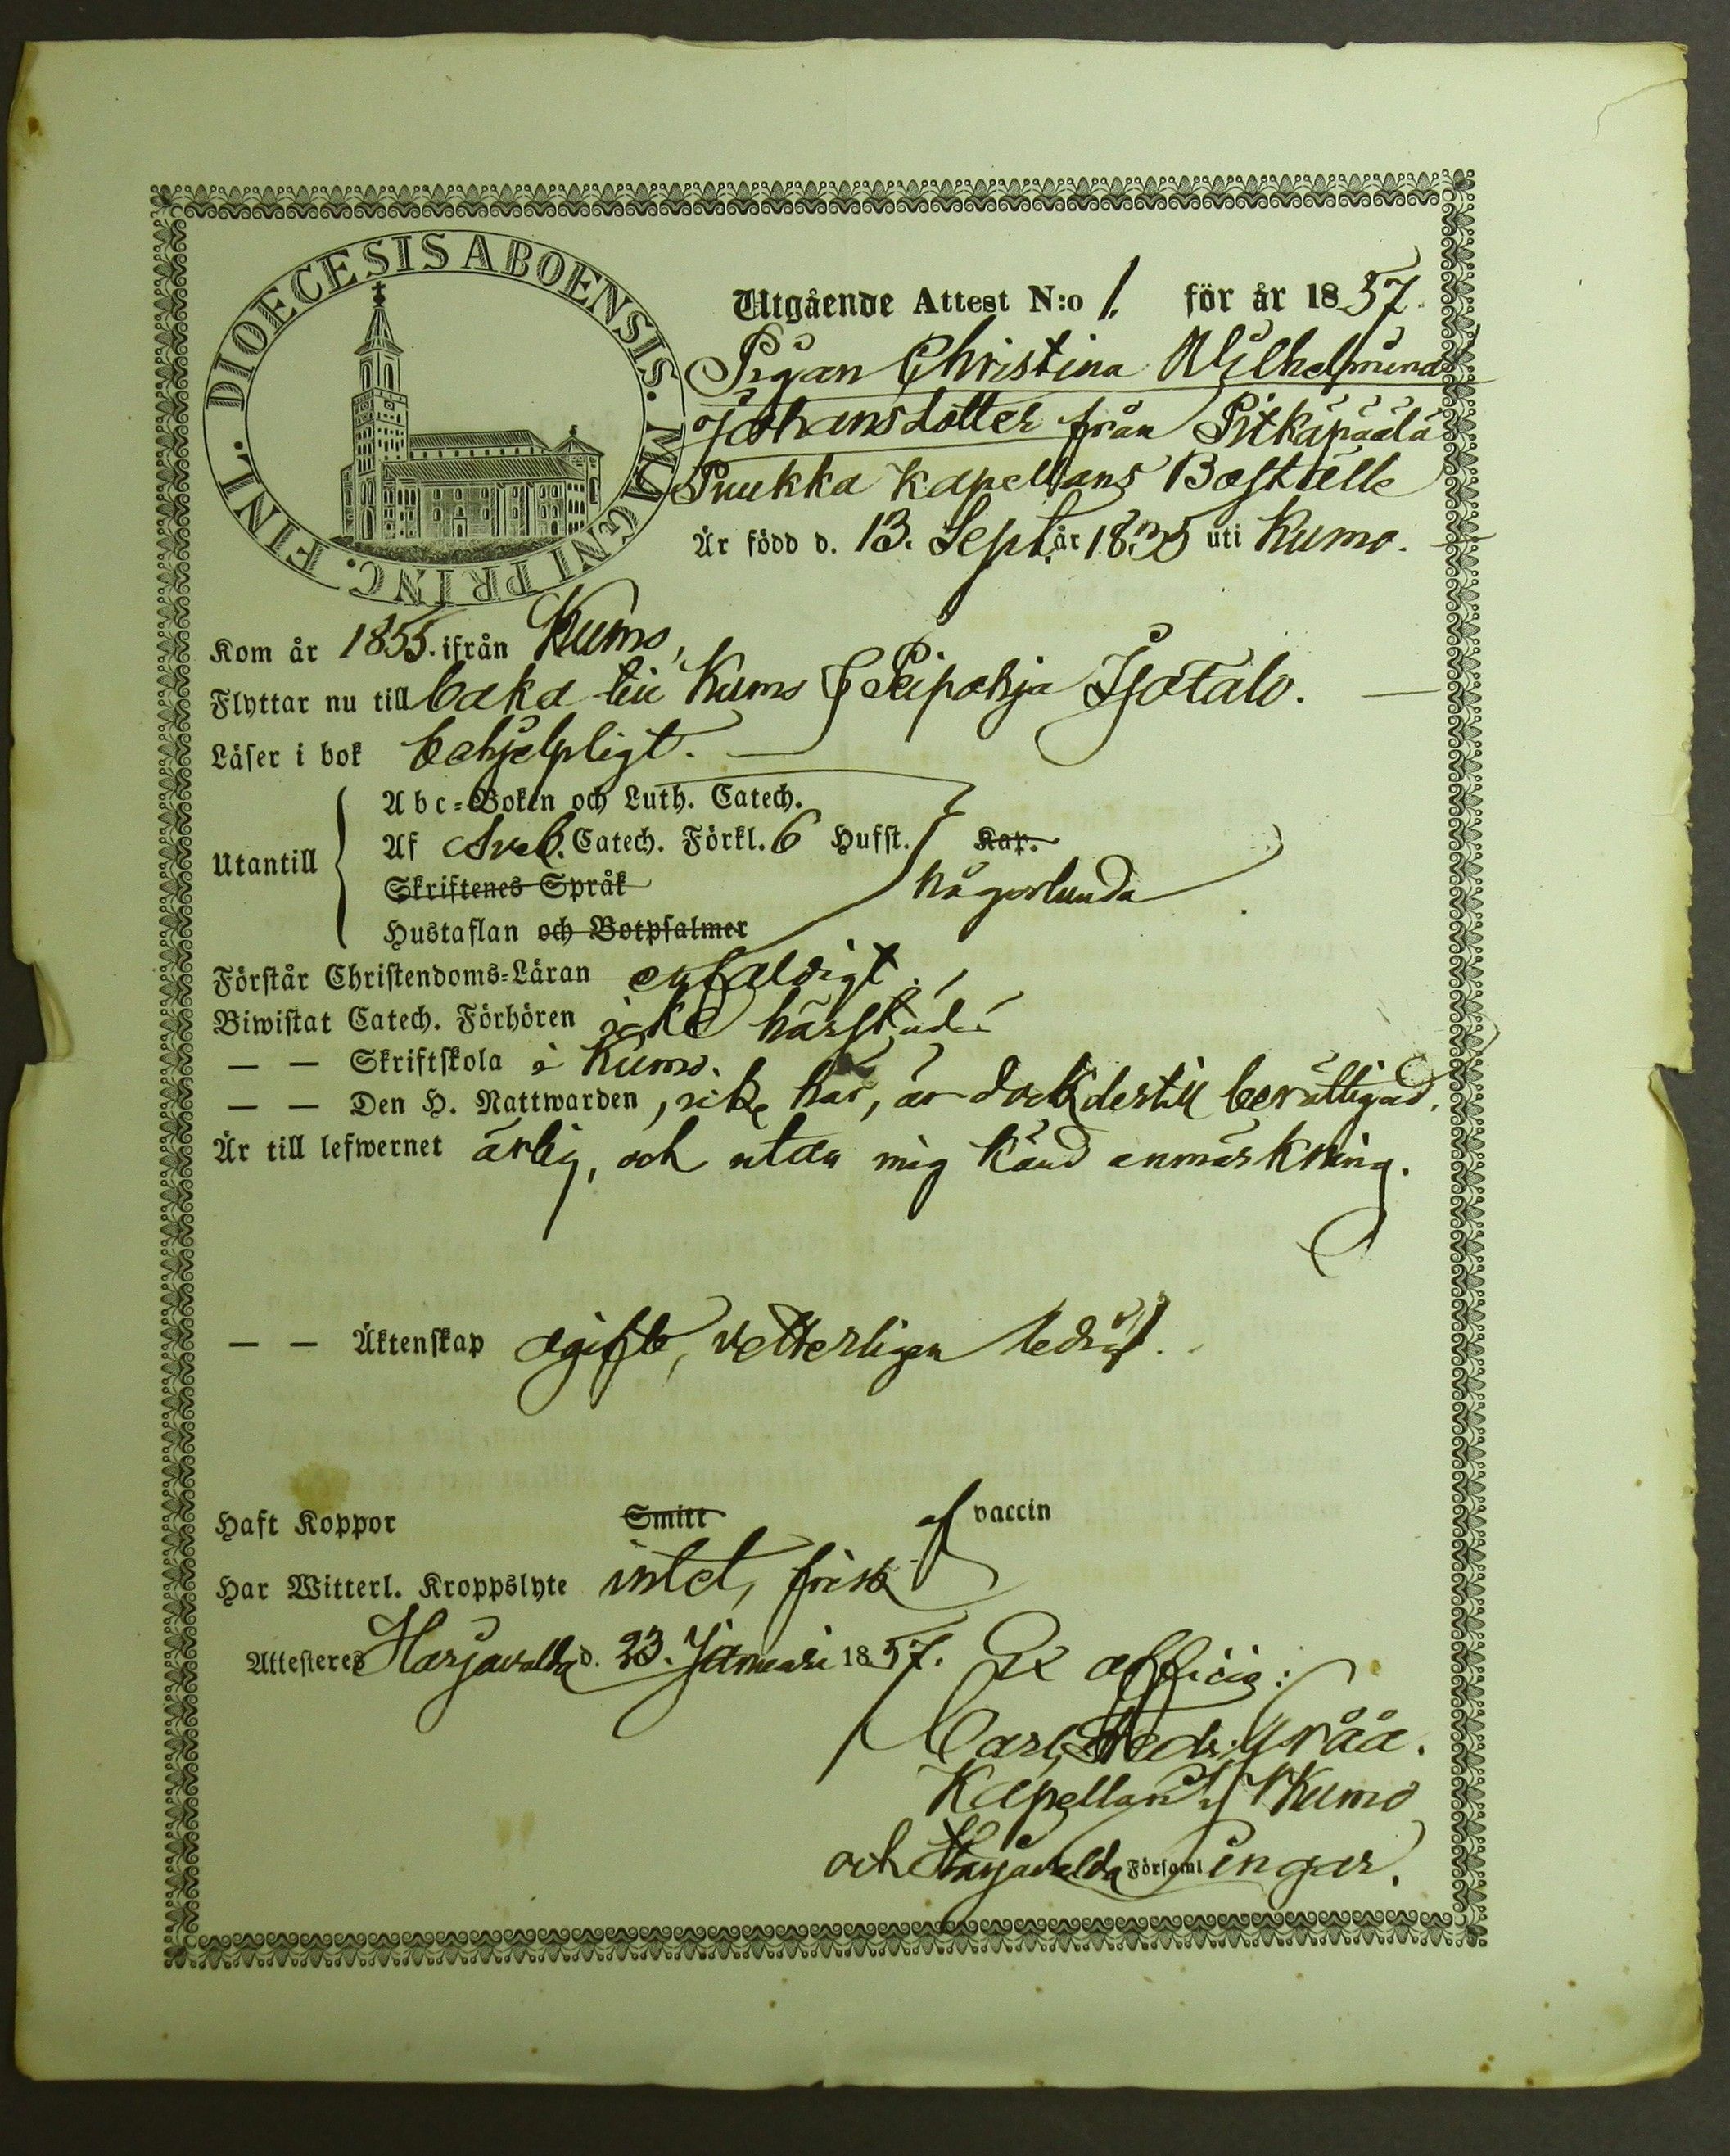 DIOECESIS ABOENSIS. IMAGNI PRINC. FINL.
Utgående Attest N:o 1. för år 1857.
Pigan Christina Wilhelmina
Johansdotter från Pitkäpäälä
Puukka Kapellans Boställe
Är född d. 13. Sept. år 1835 uti Kumo.
Kom år 1855. ifrån Kumo,
Flyttar nu till baka till Kumo Peipohja Isotalo.
Läser i bok behjelpligt.
Utantill
Abc-Boken och Luth. Catech.
Af Sveb. Catech. Förkl. 6 Hufst. Kap.
Skriftenes Språk någorlunda
Hustaflan och Botpsalmer
Förstår Christendoms-Läran enfaldigt.
Biwistat Catech. Förhören icke härstädes
— — Skriftskola i Kumo.
— — Den H. Nattwarden, icke här, är dock dertill berättigad.
Är till lefwernet ärlig, och utan mig känd anmärkning.
— — Äktenskap ogift, vetterligen ledig.
Haft Koppor Smitt af vaccin
Har Witterl. Kroppslyte intet, frisk
Attesteres Harjavalda d. 23. Januari 1857. Ex officio:
Carl Fredr. Gråå.
Kapellan i Kumo
och Harjavalda Församlingar.